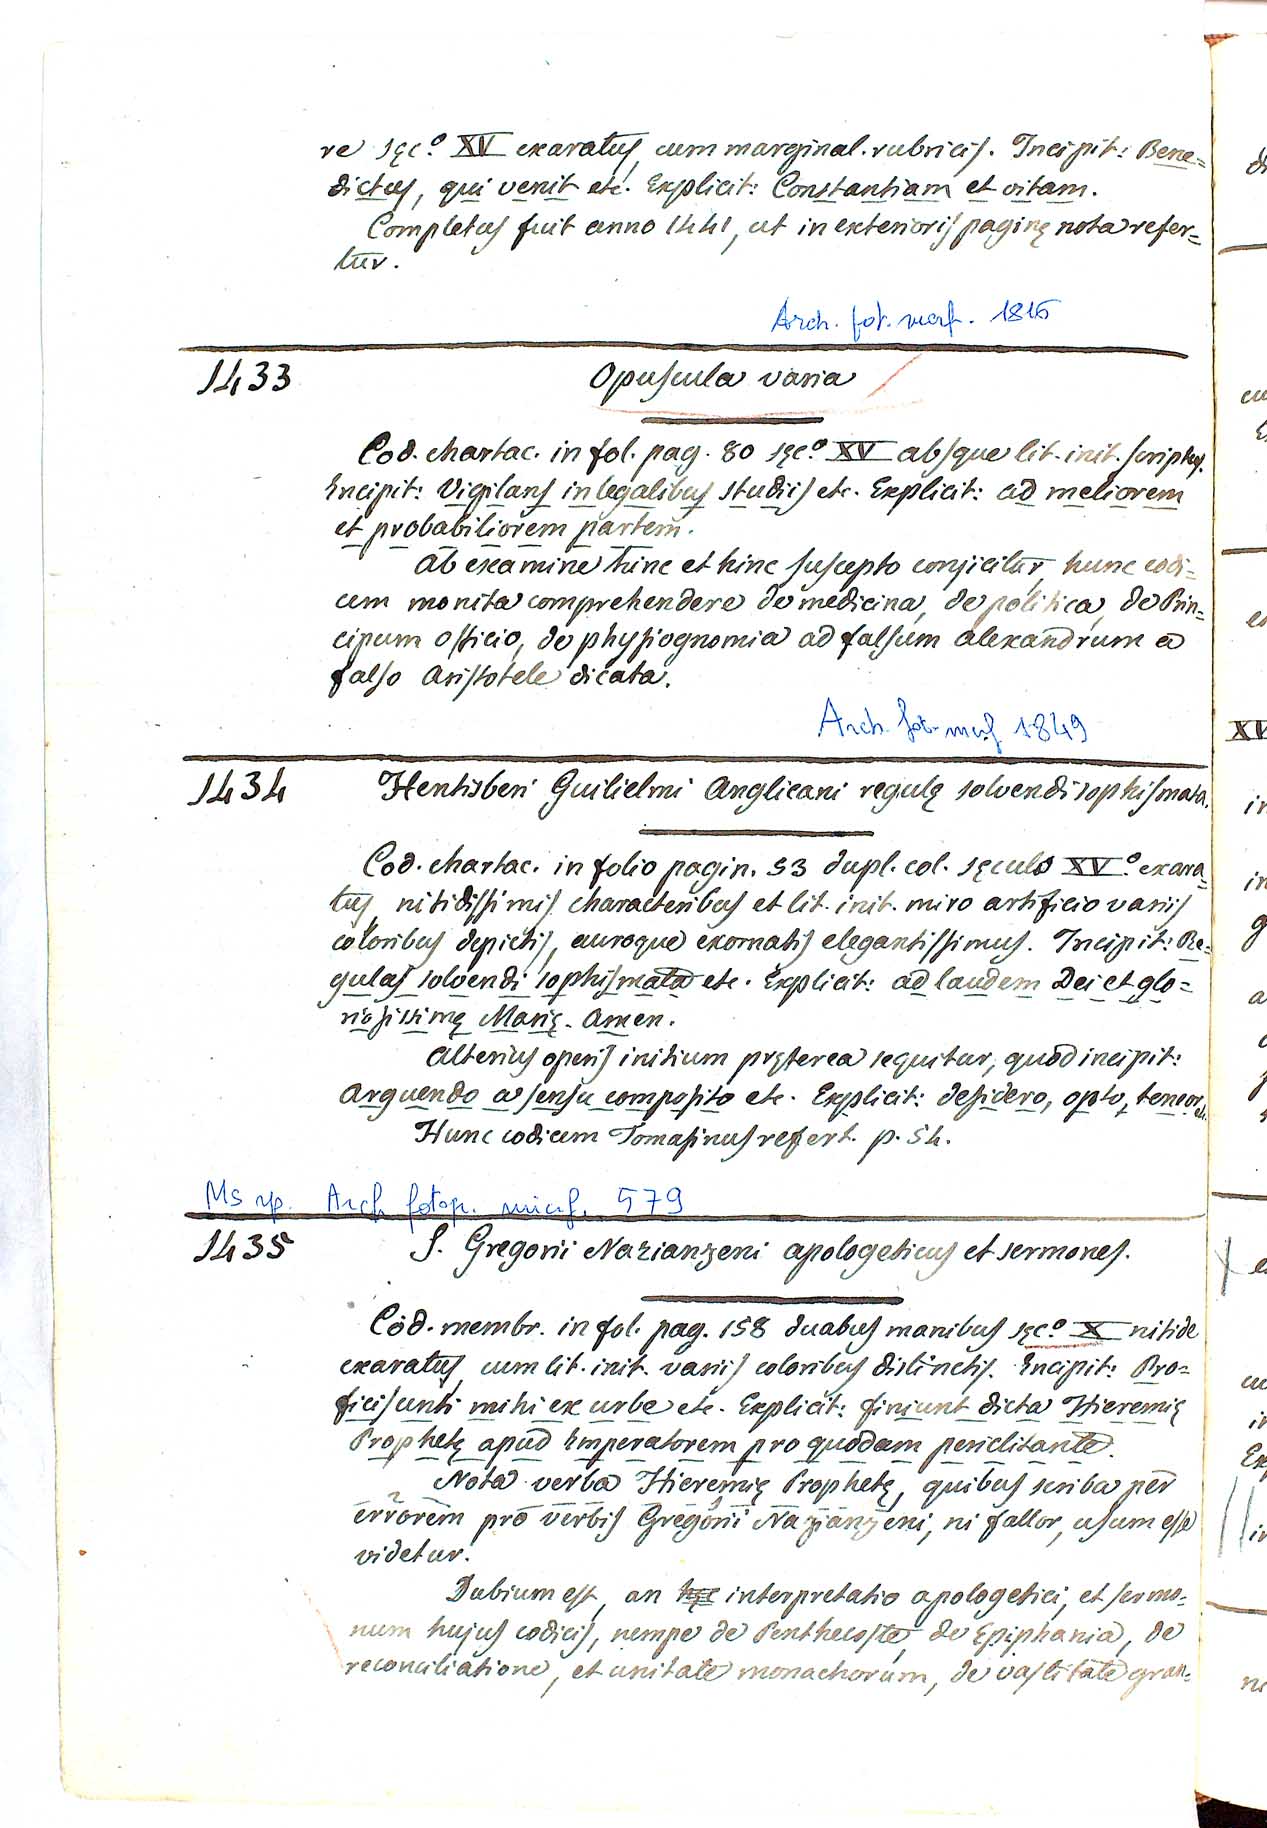 re sęc.º XV exaratus, cum marginal. rubricis. Incipit: Bene=
dictus, qui venit etc. Explicit: Constantiam et vitam.
Completus fuit anno 1441, ut in exterioris paginę nota refer=
tur.
Arch. fot. micrf. 1816
1433 Opuscula varia
Cod. chartac. in fol. pag. 80 sęc.º XV absque lit. init. scriptus.
Incipit: Vigilans in legalibus studiis etc. Explicit: ad meliorem
et probabiliorem partem.
Ab examine hinc et hinc suscepto conjicitur, hunc codi=
cem monita comprehendere de medicina, de politica, de Prin=
cipum officio, de physiognomia ad falsum Alexandrum a
falso Aristotele dicata.
Arch. fot. micrf 1849
1434 Hentisberi Guilielmi Anglicani regulę solvendi sophismata.
Cod. chartac. in folio pagin. 53 dupl. col. sęculo XVº exara=
tus, nitidissimis characteribus et lit. init. miro artificio variis
coloribus depictis, auroque exornatis elegantissimus. Incipit: Re=
gulas solvendi sophismata etc. Explicit: ad laudem Dei et glo=
riosissimę Marię. Amen.
Alterius operis initium pręterea sequitur, quod incipit:
Arguendo a sensu composito etc. Explicit: desidero, opto, teneor etc.
Hunc codicem Tomasinus refert. p. 54.
Ms rip. Arch fotogr. micrf. 579
1435 S. Gregorii Nazianzeni apologeticus et sermones.
Cod. membr. in fol. pag. 158 duabus manibus sęc.º X nitide
exaratus, cum lit. init. variis coloribus distinctis. Incipit: Pro=
ficiscunti mihi ex urbe etc. Explicit: finiunt dicta Hieremię
Prophetę apud Imperatorem pro quodam periclitante.
Nota verba Hieremię Prophetę, quibus scriba per
errorem pro verbis Gregorii Nazianzeni, ni fallor, usum esse
videtur.
Dubium est, an hęc interpretatio apologetici, et sermo=
num hujus codicis, nempe de Penthecoste, de Epiphania, de
reconciliatione, et unitate monachorum, de vastitate gran=